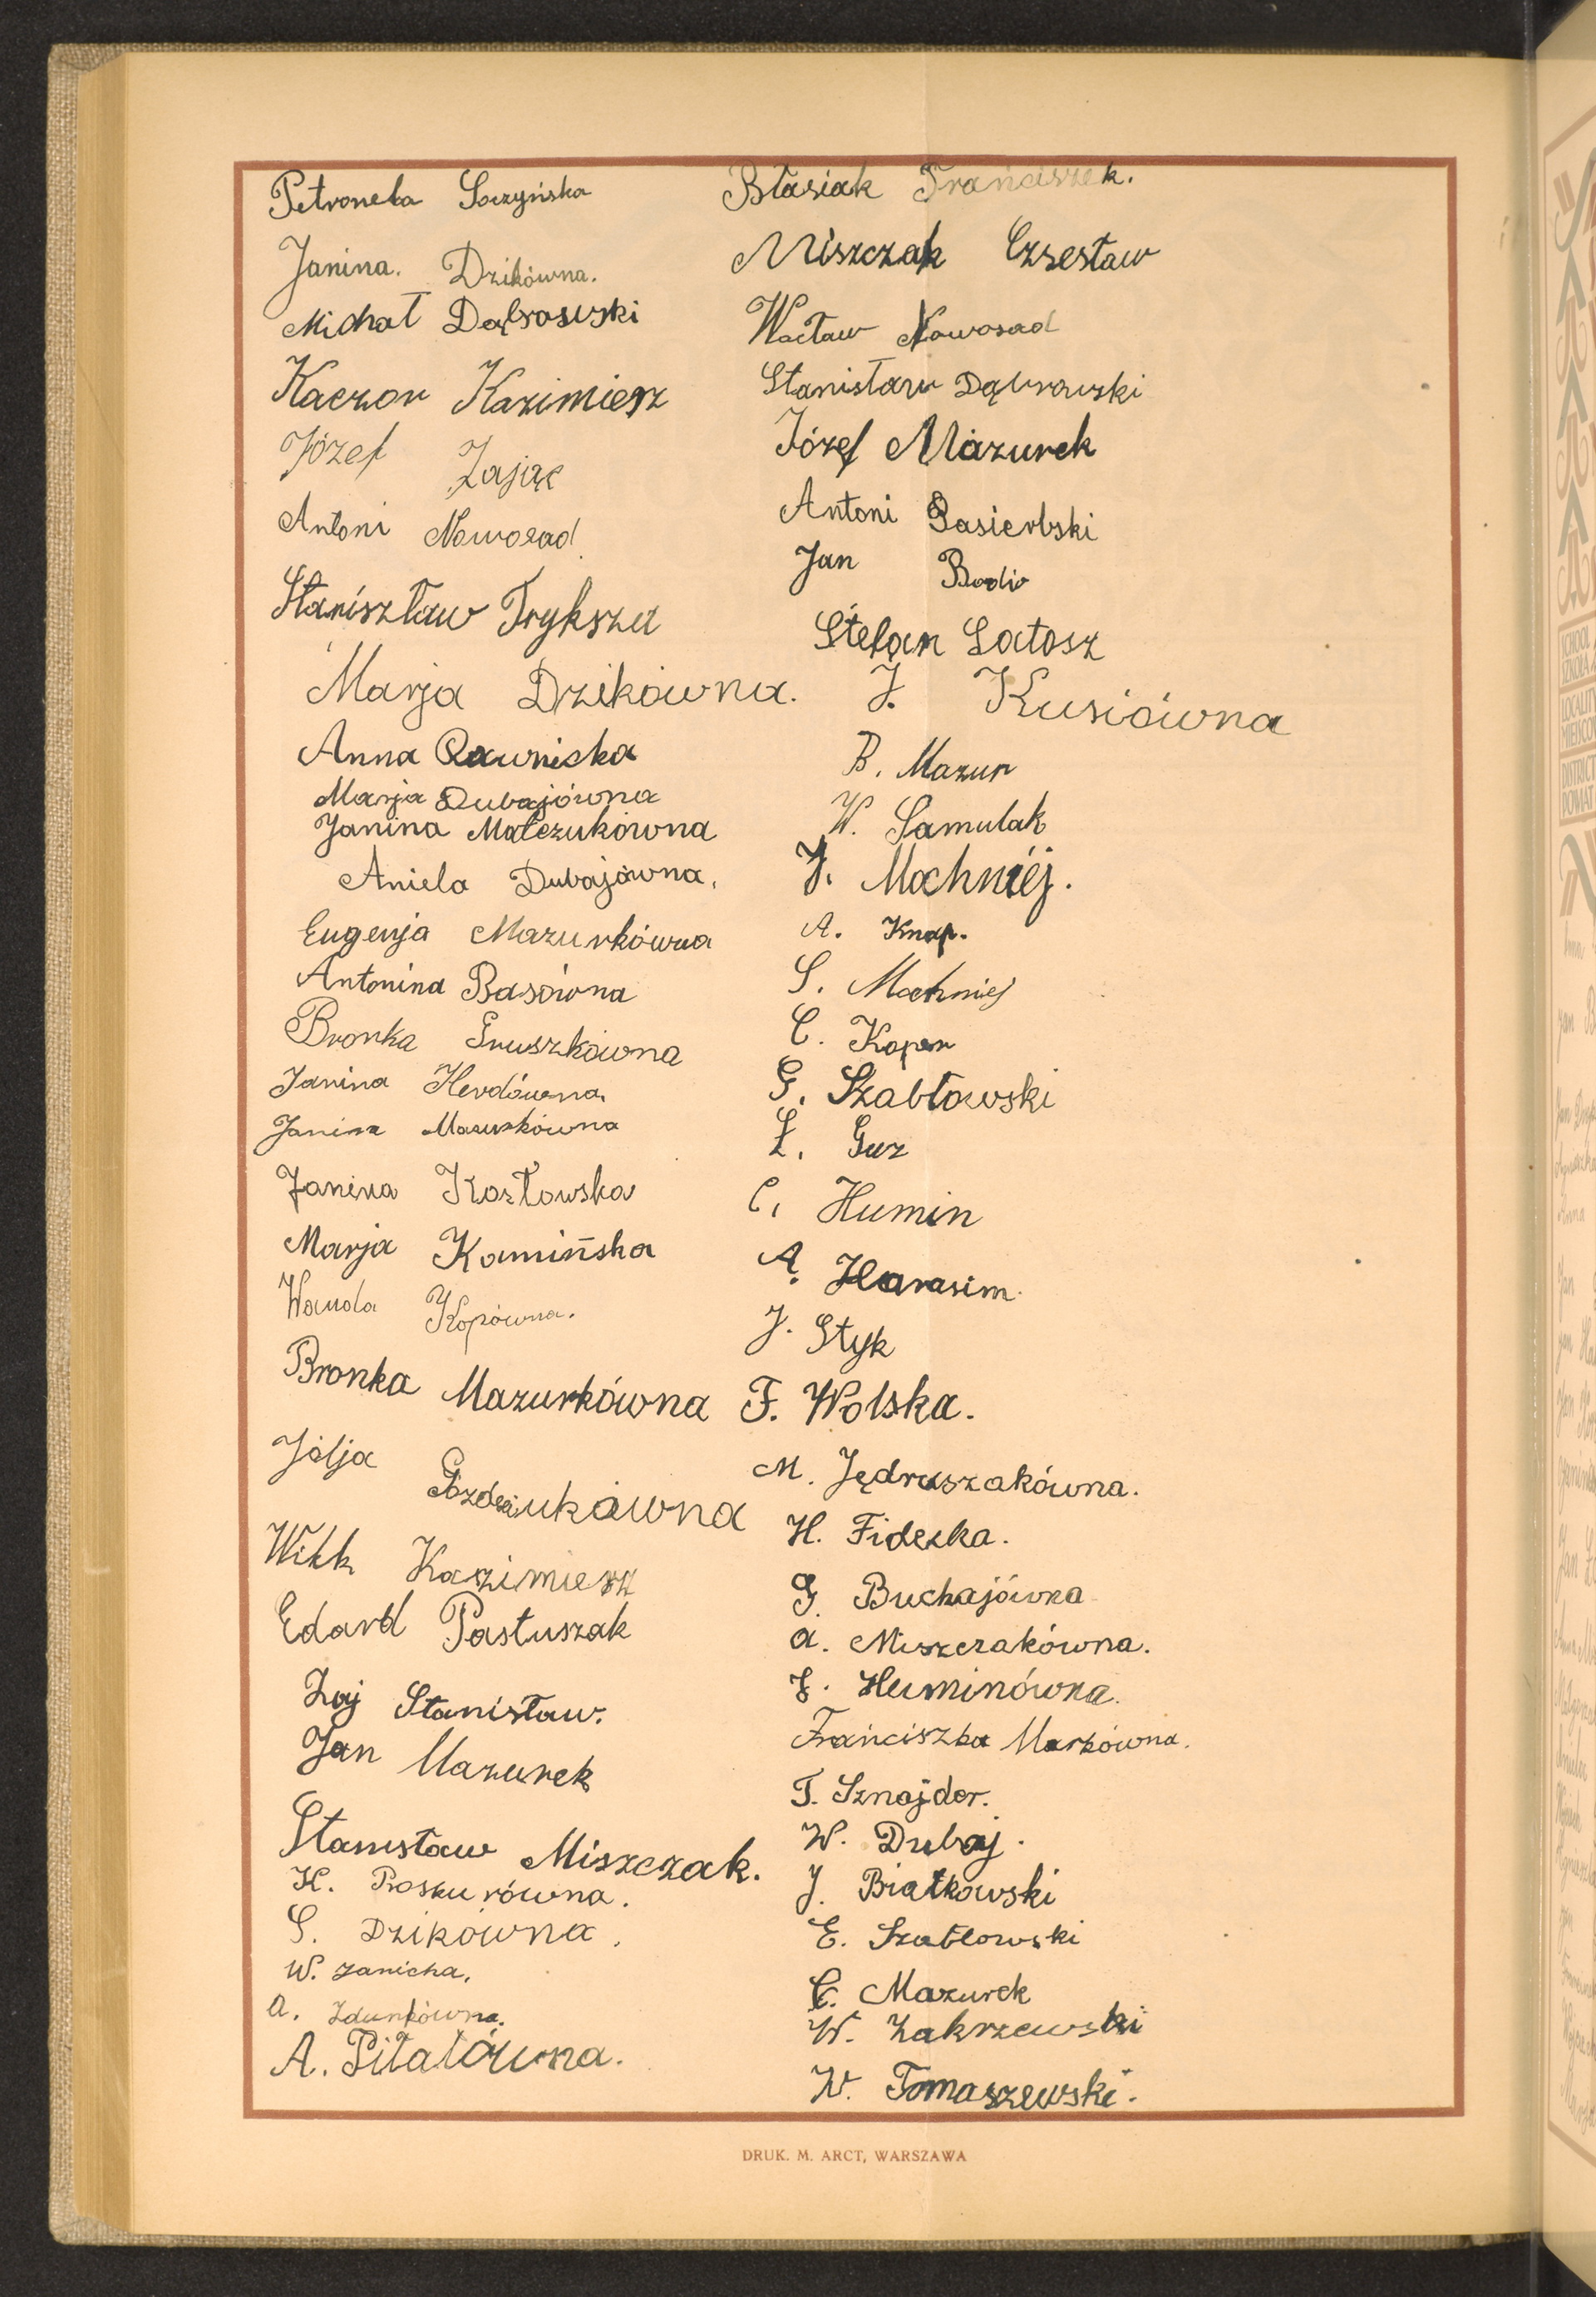 Petronela Soczyńska
Janina. Dzikówna.
Michał Dąbrowski
Kaczor Kazimierz
Józef Zając
Antoni Nowosad
Staniszław Tryksza
Marja Dzikówna.
Anna Rawnicka
Marja Dubajówna
Janina Matczukówna
Aniela Dubajówna.
Eugenja Mazurkówna
Antonina Basówna
Bronka Gruszkówna
Janina Herdówna
Janina Mazurkówna
Janina Kozłowska
Marja Kamińska
Wanda Kopówna.
Bronka Mazurkówna
Jólja
Wilk Kazimierz
Edard Pastuszak
Zaj Stanisław.
Jan Mazurek
Stanisław Miszczak.
H. Proskurówna.
S. Dzikówna.
W. Zanicha.
A. Zdunkówna.
A. Piłatówna.
Błasiak Franciszek.
Miszczak Czesław
Wacław Nowosad
Stanisław Dąbrowski
Józef Mazurek
Antoni Pasierbski
Jan Bodio
Stefan Łatosz
J. Kusiówna
B. Mazur
W. Samulak
J. Machniéj.
A. Knap.
S. Machniej
C. Koper
G. Szabłowski
Ł. Guz
C. Humin
A. Harasim.
J. Styk
F. Wolska.
M. Jędruszakówna.
H. Fidecka.
G. Buchajówna
A. Miszczakówna.
J. Huminówna.
Franciszka Markówna.
T. Sznajder.
W. Dubaj.
J. Białkowski
E. Szabłowski
C. Mazurek
W. Zakrzewski
W. Tomaszewski.
DRUK. M. ARCT, WARSZAWA